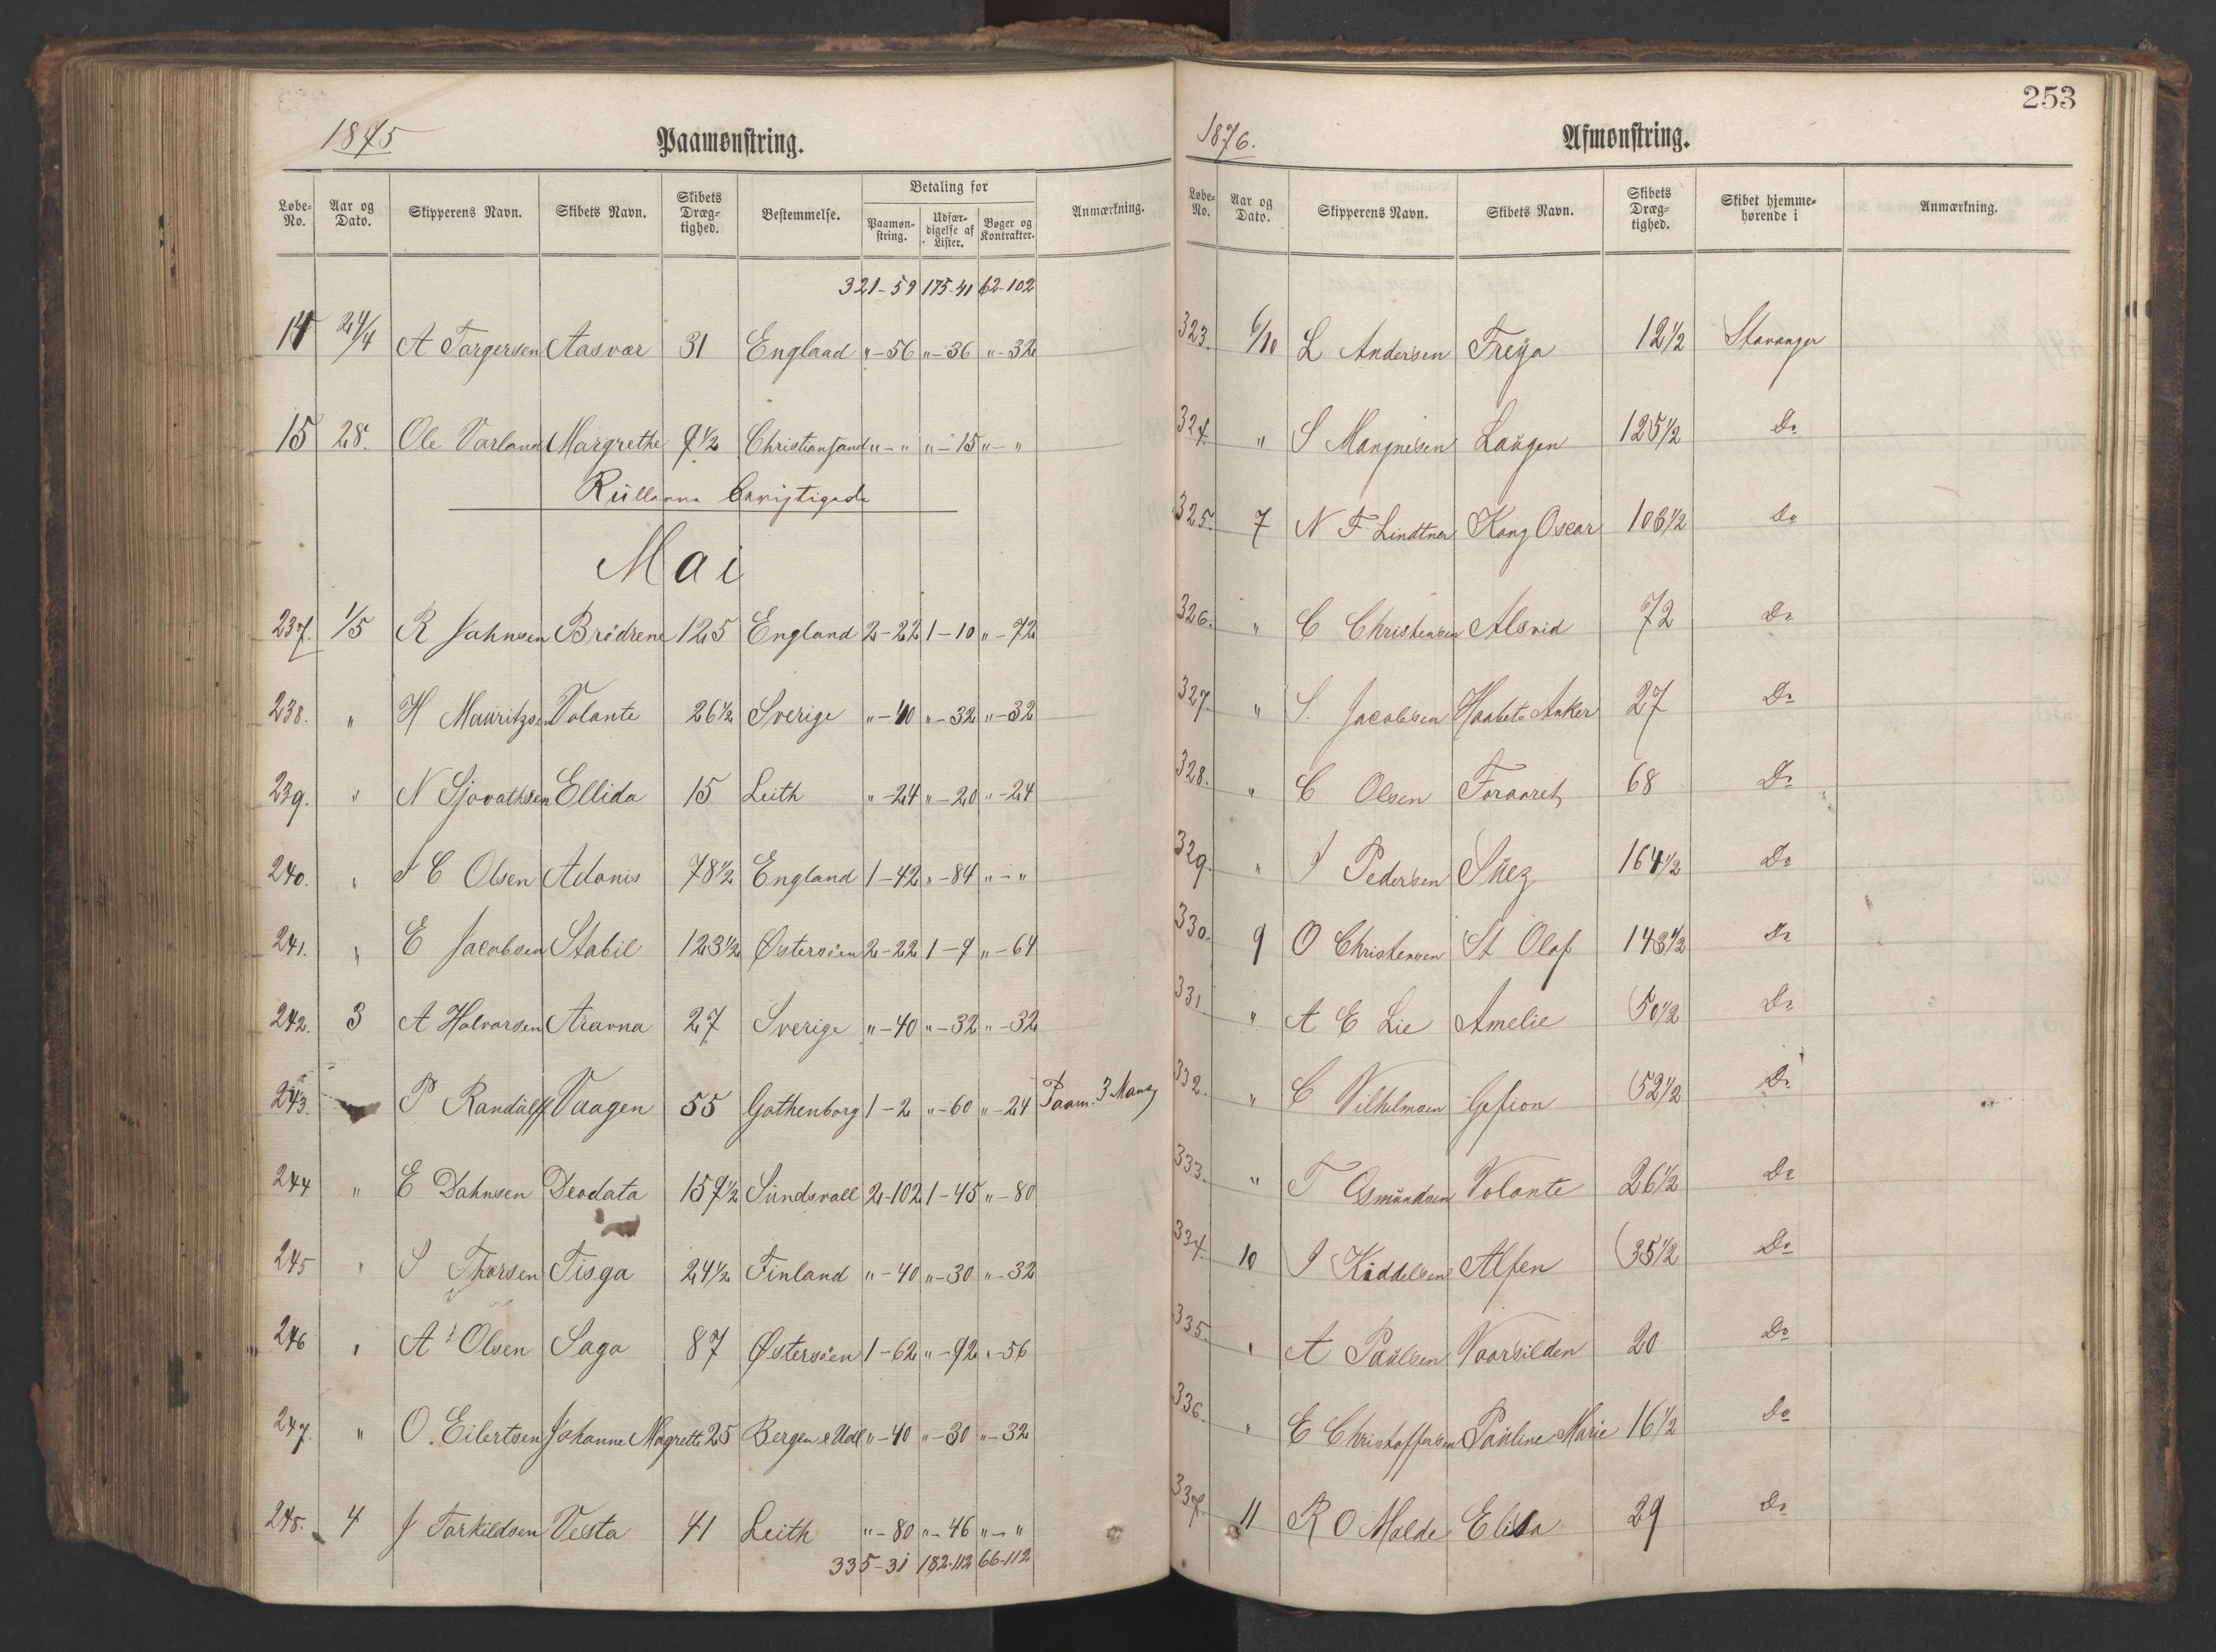 1875
Paamønstring.
Løbe-No. Aar og Dato. Skipperens Navn. Skibets Navn. Skibets Dræg-tighed. Bestemmelse. Betaling for Paamøn-string. Udfær-digelse af Lister. Bøger og Kontrakter. Anmærkning.
321-59 175-41 62-102
14 24/4 A Targersen Aasvær 31 England "-56 "-36 "-32
15 28. Ole Varland Margrethe 9 1/2 Christiansand "-" "-15 "-"
Rullerne
Mai
237. 1/5 R Jahnsen Brödrene 125 England 2-22 1-10 "-72
238. " H Mauritzen Volante 26 1/2 Sverige "-40 "-32 "-32
239. " N Sjovathsen Ellida 15 Leith "-24 "-20 "-24
240. " S C Olsen Adonis 78 1/2 England 1-42 "-84 "-"
241. " E Jacobsen Stabil 123 1/2 Østersöen 2-22 1-9 "-64
242. 3 A Halvorsen Aravna 27 Sverige "-40 "-32 "-32
243. P Randulff Vaagen 55 Gothenborg 1-2 "-60 "-24 Paam. 3 Mand
244 " E Dahnsen Deodata 159 1/2 Sundsvall 2-102 1-45 "-80
245 " S Thorsen Tisga 24 1/2 Finland "-40 "-30 "-32
246 " A Olsen Saga 87 Østersöen 1-62 "-92 "-56
247. " O. Eilertsen Johanne Magrette 25 Bergen & Udl "-40 "-30 "-32
248. 4 J Torkildsen Vesta 41 Leith "-80 "-46 "-"
335-31 182-112 66-112
253
1876.
Afmønstring.
Løbe-No. Aar og Dato. Skipperens Navn. Skibets Navn. Skibets Dræg-tighed. Skibet hjemme-hørende i Anmærkning.
323. 6/10 L Andersen Freya 12 1/2 Stavanger
324. " S Mangnesen Laugen 125 1/2 Do
325. 7 N F Lindtner Kong Oscar 106 1/2 Do
326. " C Christensen Alsvid 72 Do
327. " S. Jacobsen Haabets Anker 27 Do
328. " C Olsen Foraaret 68 Do
329. " I Pedersen Suez 164 1/2 Do
330. 9 O Christensen St Olaf 143 1/2 Do
331. " A E Lie Amelie 50 1/2 Do
332. " C Vilhelmsen Gefion 52 1/2 Do
333. " T Osmundsen Volante 26 1/2 Do
334. 10 I Kiddelsen Alfen 35 1/2 Do
335. " A Paulsen Vaarsilden 20 Do
336. " E Christoffersen Pauline Marie 16 1/2 Do
337. 11 R O Malde Elisa 29 Do